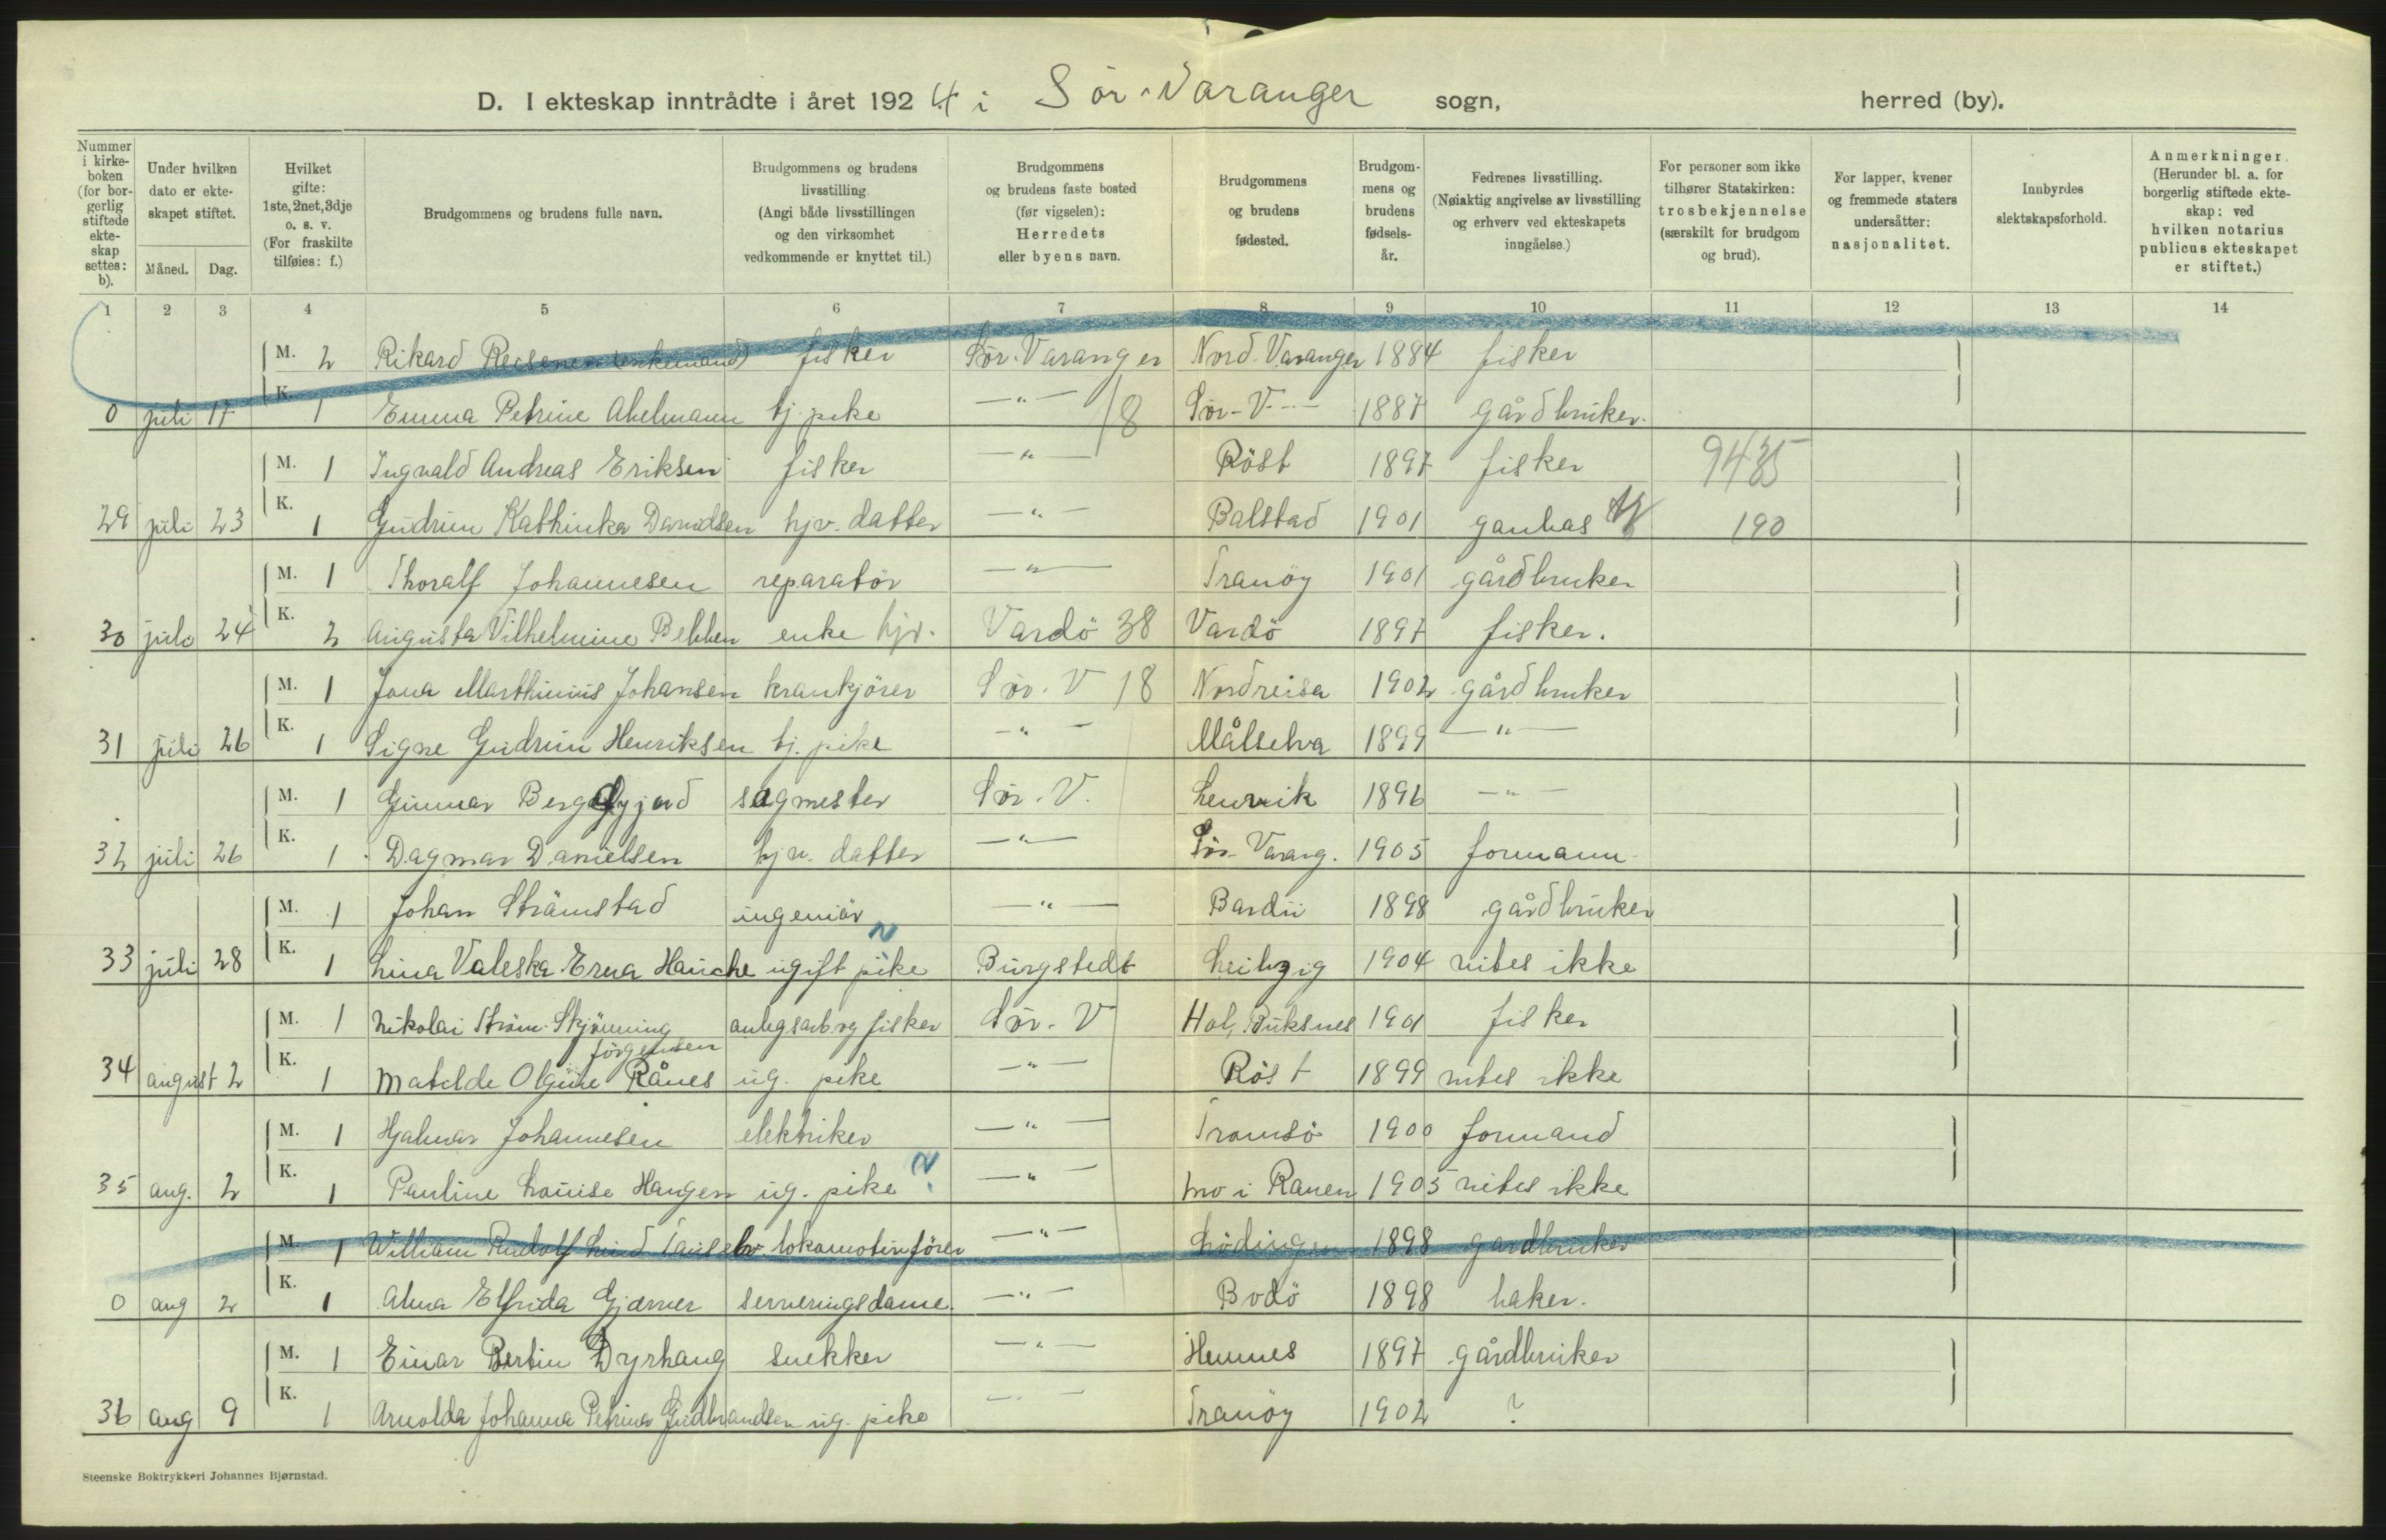 D. I ekteskap inntrådte i året 1924 i Sör-Varanger sogn, herred (by).
Nummer i kirkeboken (for borgerlig stiftede ekteskap settes: b).
Under hvilken dato er ekteskapet stiftet.
Måned. Dag.
Hvilket gifte: 1ste, 2net, 3dje o. s. v. (For fraskilte tilføies: f.)
Brudgommens og brudens fulle navn.
Brudgommens og brudens livsstilling (Angi både livsstillingen og den virksomhet vedkommende er knyttet til.)
Brudgommens og brudens faste bosted (før vigselen): Herredets eller byens navn.
Brudgommens og brudens fødested.
Brudgommens og brudens fødselsår.
Fedrenes livsstilling. (Nøiaktig angivelse av livsstilling og erhverv ved ekteskapets inngåelse.)
For personer som ikke tilhører Statskirken: trosbekjennelse (særskilt for brudgom og brud).
For lapper, kvener og fremmede staters undersåtter: nasjonalitet.
Innbyrdes slektskapsforhold.
Anmerkninger. (Herunder bl. a. for borgerlig stiftede ekteskap: ved hvilken notarius publicus ekteskapet er stiftet.)
1 2 3 4 5 6 7 8 9 10 11 12 13 14
M. 2 Rikard (enkemand) fisker Sör. Varanger Nord. Varanger 1884 fisker
0 juli 17 K. 1 Emma Petrine Abelmann tj. pike —"— 18 Sör-V-- 1887 gårdbruker.
M. 1 Ingvald Andreas Eriksen fisker —"— Röst 1897 fisker 9435
29 juli 23 K. 1 Gudrun Kathinka Danielsen hjv. datter —"— Balstad 1901 190
M. 1 Thoralf Johannesen reparatör —"— Tranöy 1901 gårdbruker
30 juli 24 K. 2 Augusta Vilhelmine Bekken enke hjv. Vardö 38 Vardö 1897 fisker.
M. 1 Jona Marthinius Johansen krankjörer Sör. V 18 Nordreisa 1902 gårdbruker
31 juli 26 K. 1 Signe Gudrun Henriksen tj. pike —"— Målselva 1899 —"—
M. 1 Gunnar sagmester Sör. V. Lenvik 1896 —"—
32 juli 26 K. 1 Dagmar Danielsen hjv. datter —"— Sör-Varang. 1905 formann
M. 1 Johan Strömstad ingeniör —"— Bardu 1898 gårdbruker
33 juli 28 K. 1 Lina Valeska Erna Hauche ugift pike Burgstedt Leibzig 1904 vites ikke
M. 1 Nikolai Ström. Skjönning anlegsarb. og fisker Sör. V Hol, Buksnes 1901 fisker
Jörgensen
34 august 2 K. 1 Matelde Olgine Rånes ug. pike —"— Röst 1899 vites ikke
M. 1 Hjalmar Johannesen elektriker —"— Tromsö 1900 formand
35 aug. 2 K. 1 Pauline Louise Haugen ug. pike ? —"— Mo i Ranen 1905 vites ikke
M. 1 William Rudolf Lind lokomotivförer —"— Lödingen 1898 gardbruker
0 aug 2 K. 1 Alma Elfrida Gjærver serveringsdame. —"— Bodö 1898 baker.
M. 1 Einar Bertin Dyrhaug snekker —"— Hemnes 1897 gårdbruker
36 aug 9 K. 1 Arnolda Johanna Petrine Gudbrandsen ug. pike —"— Tranöy 1902 ?
Steenske Boktrykkeri Johannes Bjørnstad.